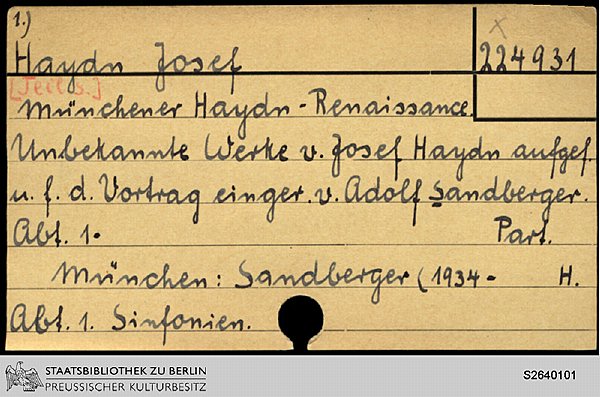 1.)
Haydn Josef
x
224931
[Teils.]
Münchener Haydn-Renaissance.
Unbekannte Werke v. Josef Haydn aufgef.
u. f. d. Vortrag einger. v. Adolf Sandberger.
Abt. 1.
Part.
München: Sandberger (1934- H.
Abt. 1. Sinfonien.
STAATSBIBLIOTHEK ZU BERLIN
PREUSSISCHER KULTURBESITZ
S2640101